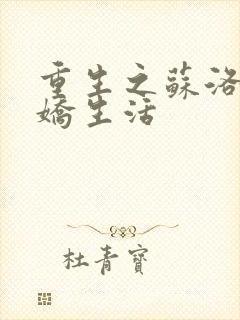 重生之蘇洛
嬌生活
杜青寶